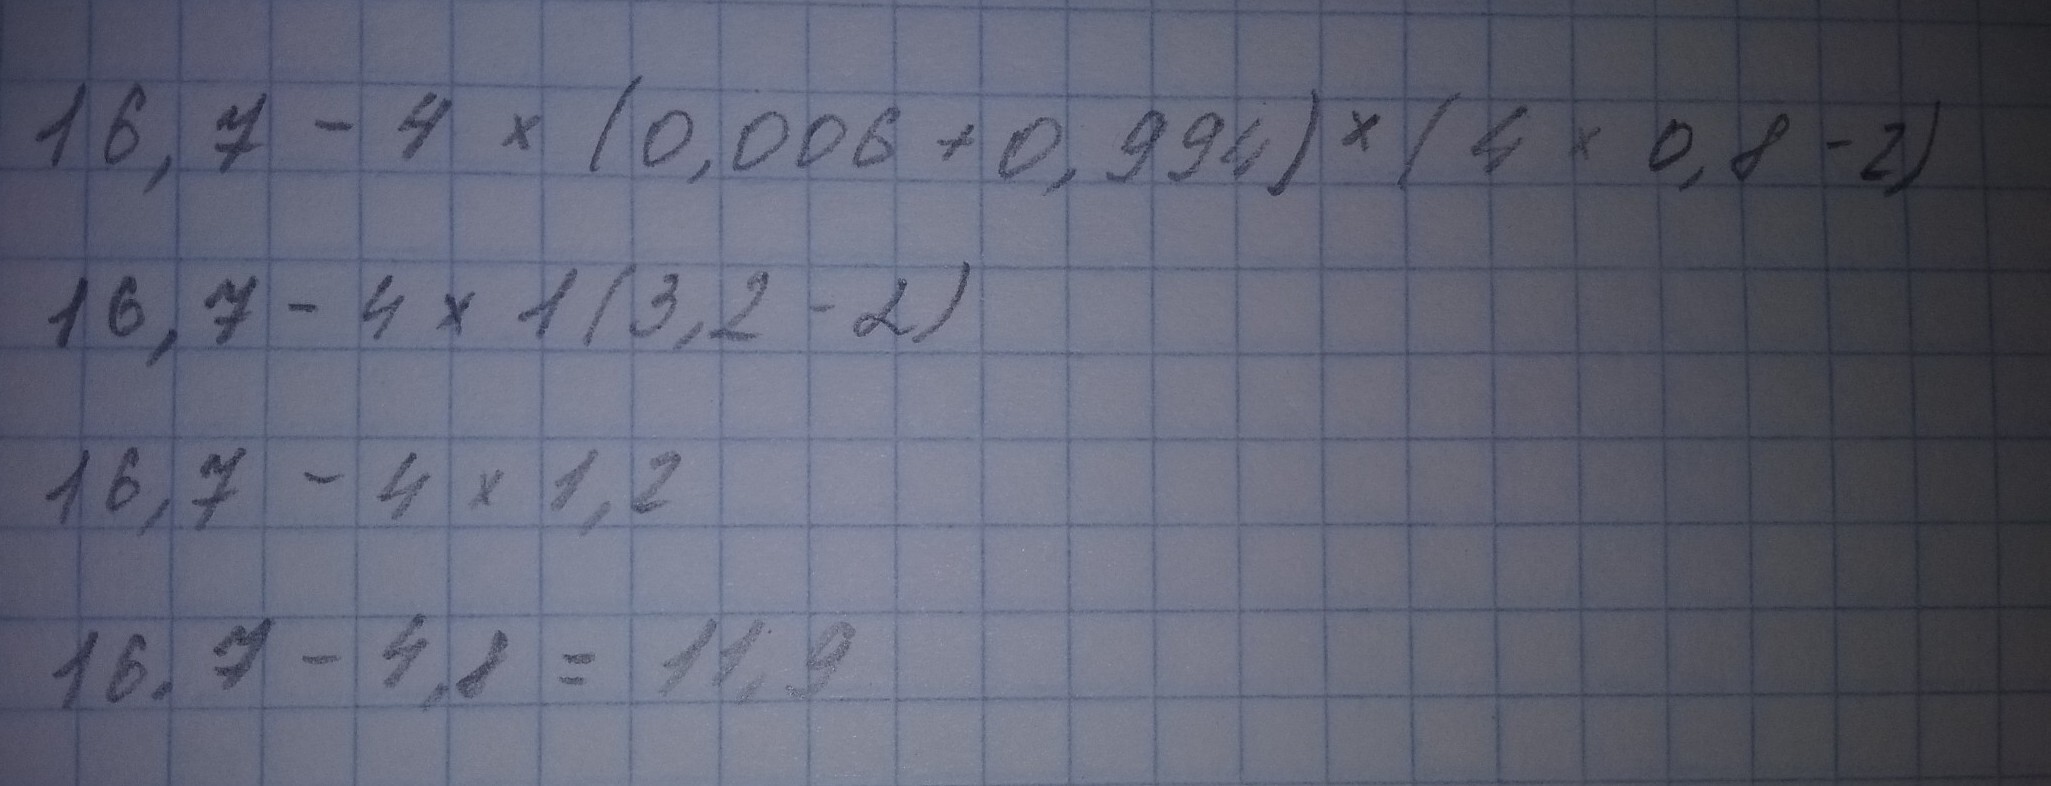 16,7 - 4 × (0,006 + 0,994) × (4 × 0,8 - 2)
16,7 - 4 × 1(3,2 - 2)
16,7 - 4 × 1,2
16.7 - 4,8 = 11,9